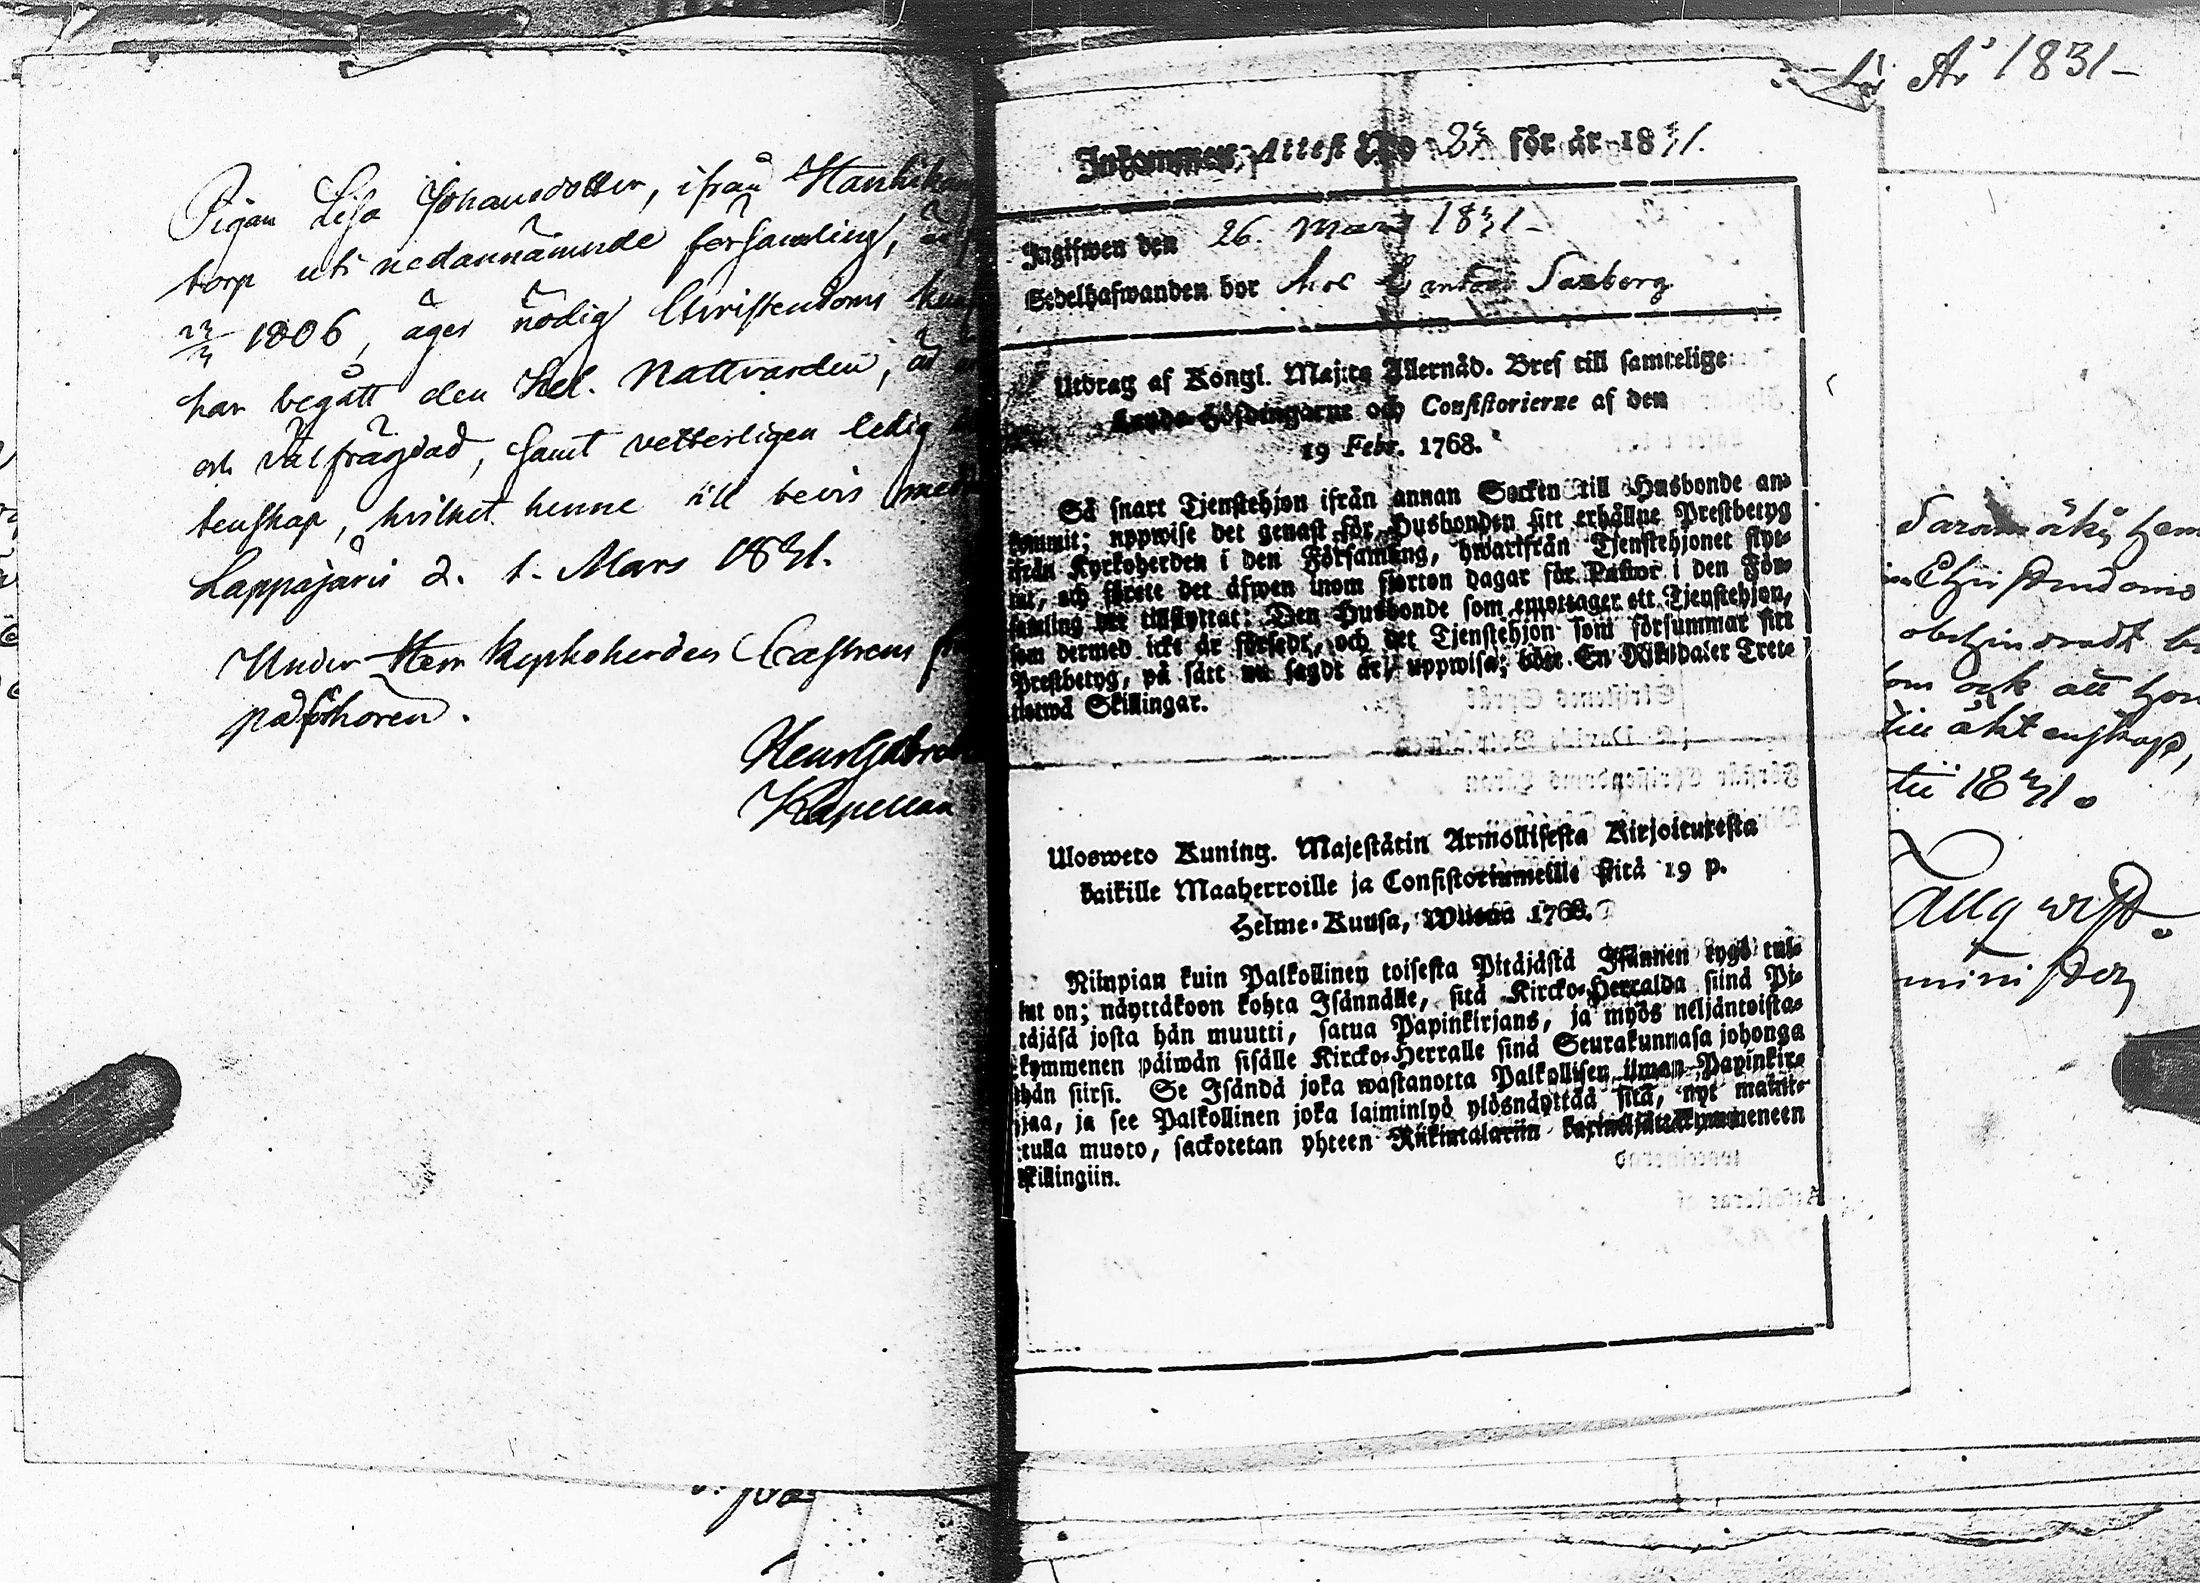 Pigan Lisa Johansdotter, ifrån
torp uti nedannämnde församling,
1806, äger nödig Christendoms
har begått den Hel. Nattvarden,
och välfrägdad, samt vetterligen ledig
tenskap, hvilket henne till bevis
Lappajärvi d. 1. Mars 1831.
Under Herr Kyrkoherden Castrens
påföhoren.
Kapellan
Inkommen Attest No 23 för år 1831.
Ingifwen den 26. Mars 1831
Sedelhafwanden bor hos Cantor Saxberg
Utdrag af Kongl. Maj:ts Allernåd. Bref till samtelige
Lands-Höfdingarne och Consistorierne af den
19 Febr. 1768.
Så snart Tjenstehjon ifrån annan Socken till Husbonde an-
kommit; uppwise det genast för Husbonden sitt erhållne Prestbetyg
ifrån Kyrkoherden i den Församling, hwarifrån Tjenstehjonet flyt-
tat, och förete det äfwen inom fjorton dagar för Pastor i den För-
samling det tillflyttat: Den Husbonde som emottager ett Tjenstehjon,
som dermed icke är försedt, och det Tjenstehjon som försummar sitt
Prestbetyg, på sätt nu sagdt är, uppwisa; böte En Riksdaler Tret-
tiotwå Skillingar.
Ulosweto Kuning. Majestätin Armollisesta Kirjoituxesta
kaikille Maaherroille ja Consistoriumeille siitä 19 p.
Helme-Kuusa, Wuonna 1768.
Niinpian kuin Palkollinen toisesta Pitäjästä Isännen tygö tul-
lut on; näyttäkoon kohta Isännälle, sitä Kircko-Herralda siinä Pi-
täjäsä josta hän muutti, satua Papinkirjans, ja myös neljäntoista-
kymmenen päiwän sisälle Kircko-Herralle sinä Seurakunnasa johonga
hän siirsi. Se Isändä joka wastanotta Palkollisen ilman Papinkir-
jaa, ja see Palkollinen joka laiminlyö ylösnäyttää sitä, nyt mainit-
tulla muoto, sackotetan yhteen Riikintalariin
skillingiin.
År 1831
Christendoms
obehindradt
om ock att hon
till äktenskap,
tii 1831.